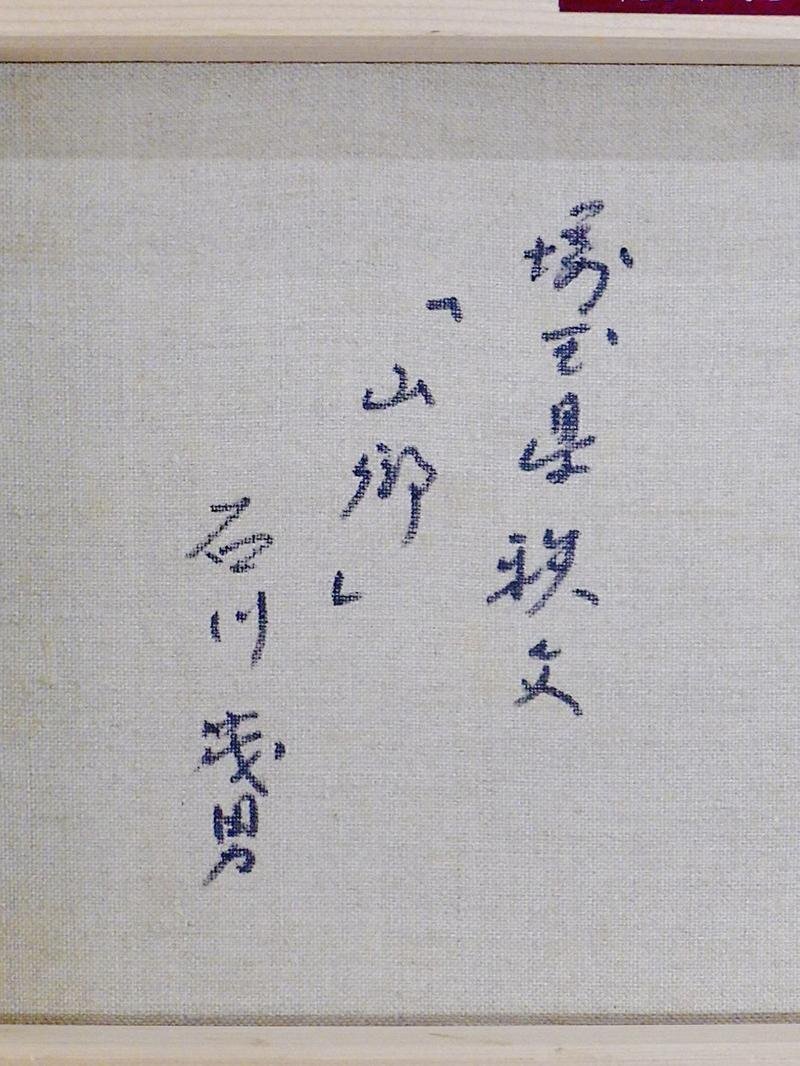 埼玉県秩父
「山郷」
石川茂